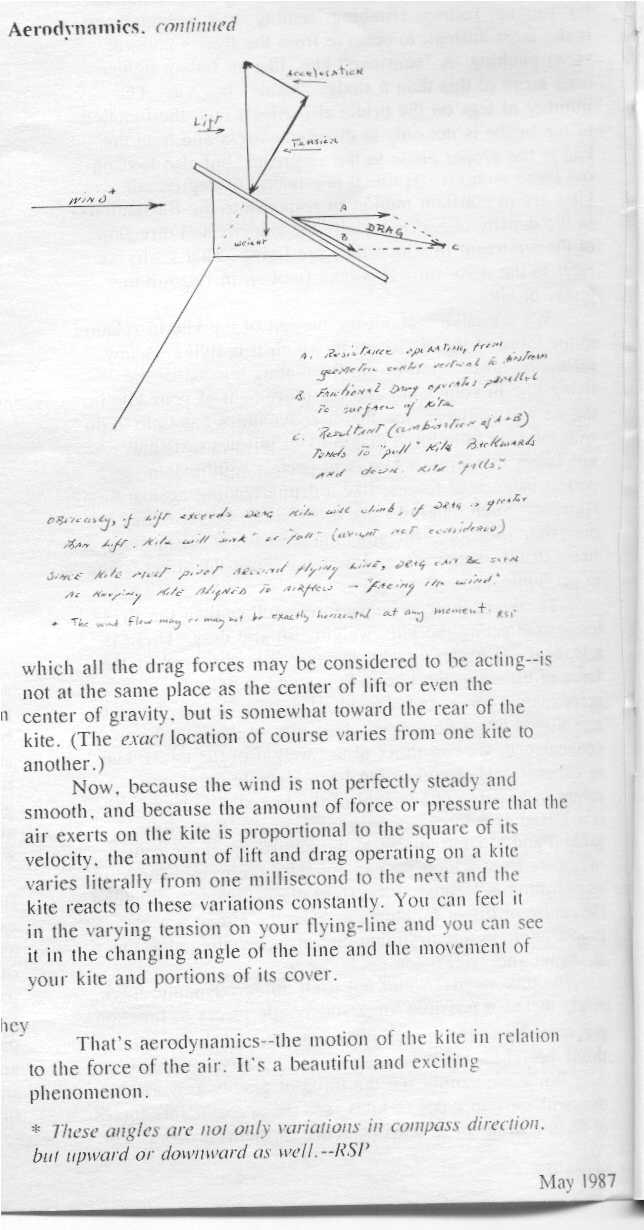 Aerodynamics, continued
Acceleration
Lift
Tension
WIND +
A
DRAG
B
C
weight
A. Resistance operating from
geometric center vertical to airstream
B. Frictional Drag operates parallel
to surface of Kite
C. Resultant (combination of A+B)
Tends To "pull" Kite Backwards
and down. Kite "falls".
OBViously, if Lift exceeds DRAG Kite will climb; if DRAG is greater
THAN Lift, Kite will "sink" or "fall" (weight not considered)
SINCE Kite must pivot around flying LINE, DRAG CAN BE seen
as keeping Kite Aligned to airflow — "facing the wind".
+ The wind flow may or may not be exactly horizontal at any moment. RSP
which all the drag forces may be considered to be acting--is
not at the same place as the center of lift or even the
n center of gravity, but is somewhat toward the rear of the
kite. (The exact location of course varies from one kite to
another.)
Now, because the wind is not perfectly steady and
smooth, and because the amount of force or pressure that the
air exerts on the kite is proportional to the square of its
velocity, the amount of lift and drag operating on a kite
varies literally from one millisecond to the next and the
kite reacts to these variations constantly. You can feel it
in the varying tension on your flying-line and you can see
it in the changing angle of the line and the movement of
your kite and portions of its cover.
hey
That's aerodynamics--the motion of the kite in relation
to the force of the air. It's a beautiful and exciting
phenomenon.
* These angles are not only variations in compass direction,
but upward or downward as well.--RSP
May 1987